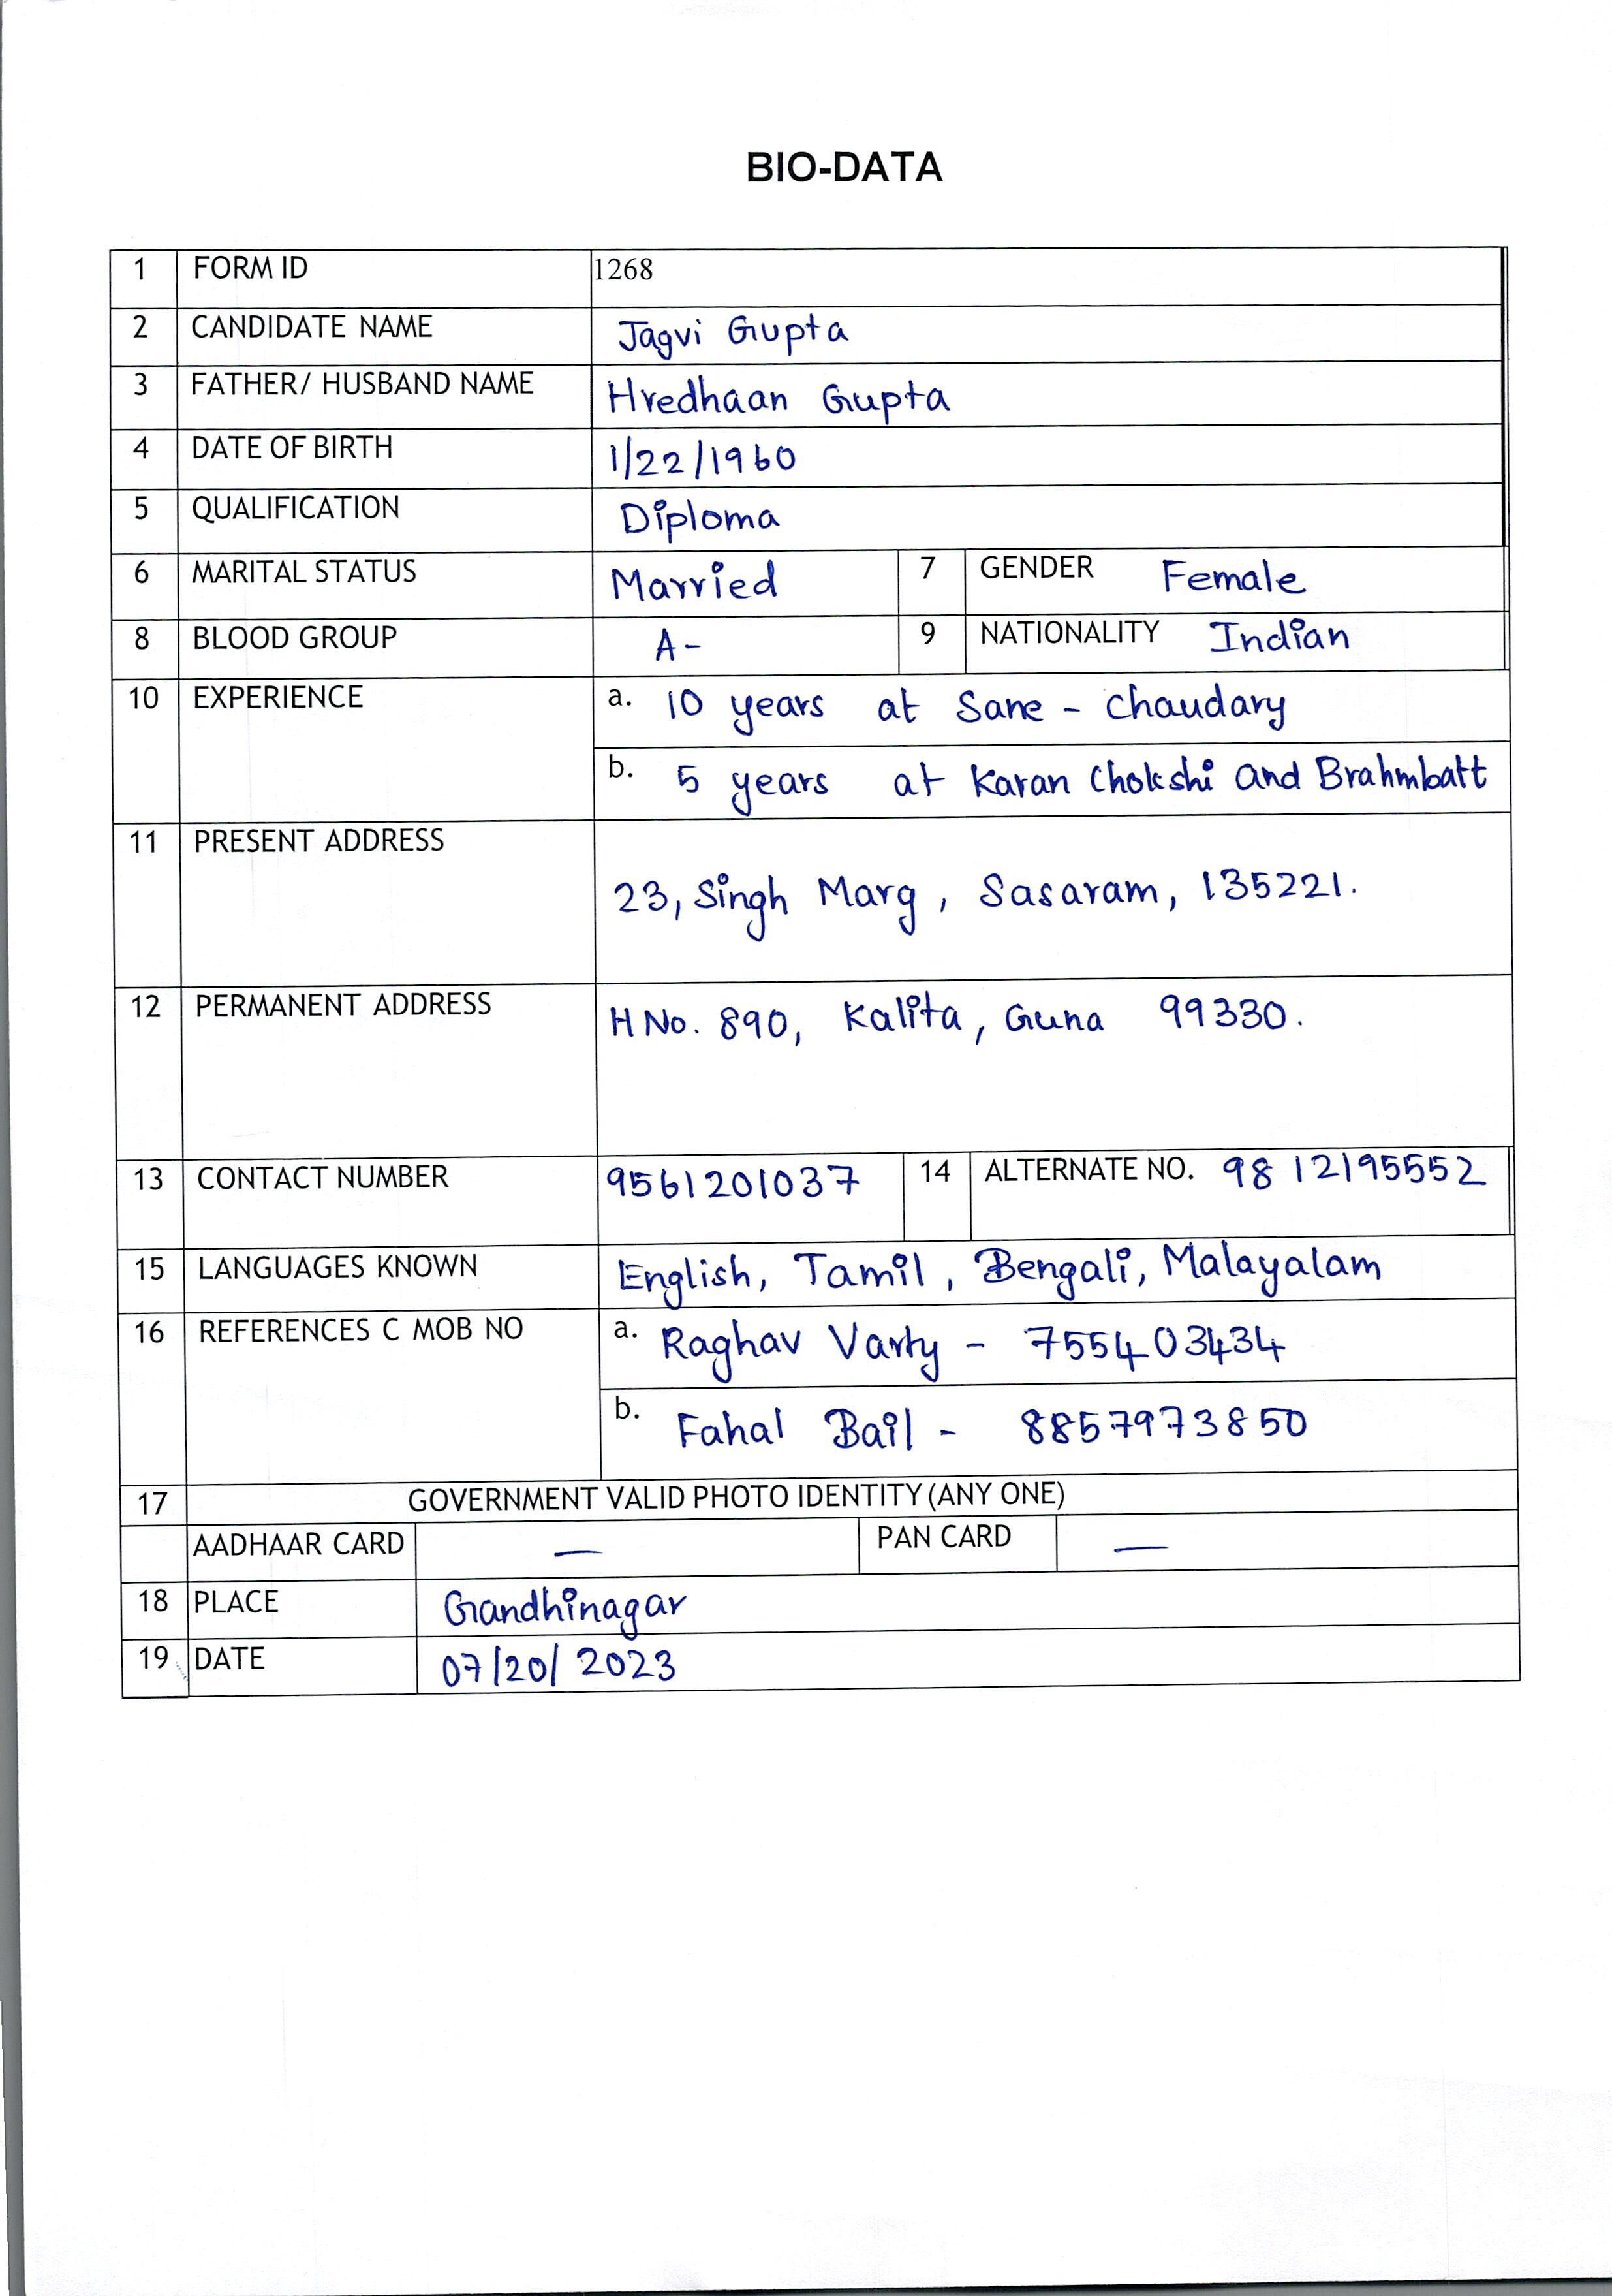 BIO-DATA
1 FORM ID 1268
2 CANDIDATE NAME Jagvi Gupta
3 FATHER/ HUSBAND NAME Hredhaan Gupta
4 DATE OF BIRTH 1/22/1960
5 QUALIFICATION Diploma
6 MARITAL STATUS Married 7 GENDER Female
8 BLOOD GROUP A- 9 NATIONALITY Indian
10 EXPERIENCE a. 10 years at Sane - Chaudary
b. 5 years at Karan Chokshi and Brahmbatt
11 PRESENT ADDRESS
23, Singh Marg, Sasaram, 135221.
12 PERMANENT ADDRESS H No. 890, Kalita, Guna 99330.
13 CONTACT NUMBER 9561201037 14 ALTERNATE NO. 9812195552
15 LANGUAGES KNOWN English, Tamil, Bengali, Malayalam
16 REFERENCES C MOB NO a. Raghav Varty - 755403434
b. Fahal Bail - 8857973850
17 GOVERNMENT VALID PHOTO IDENTITY (ANY ONE)
AADHAAR CARD — PAN CARD —
18 PLACE Gandhinagar
19 DATE 07/20/2023